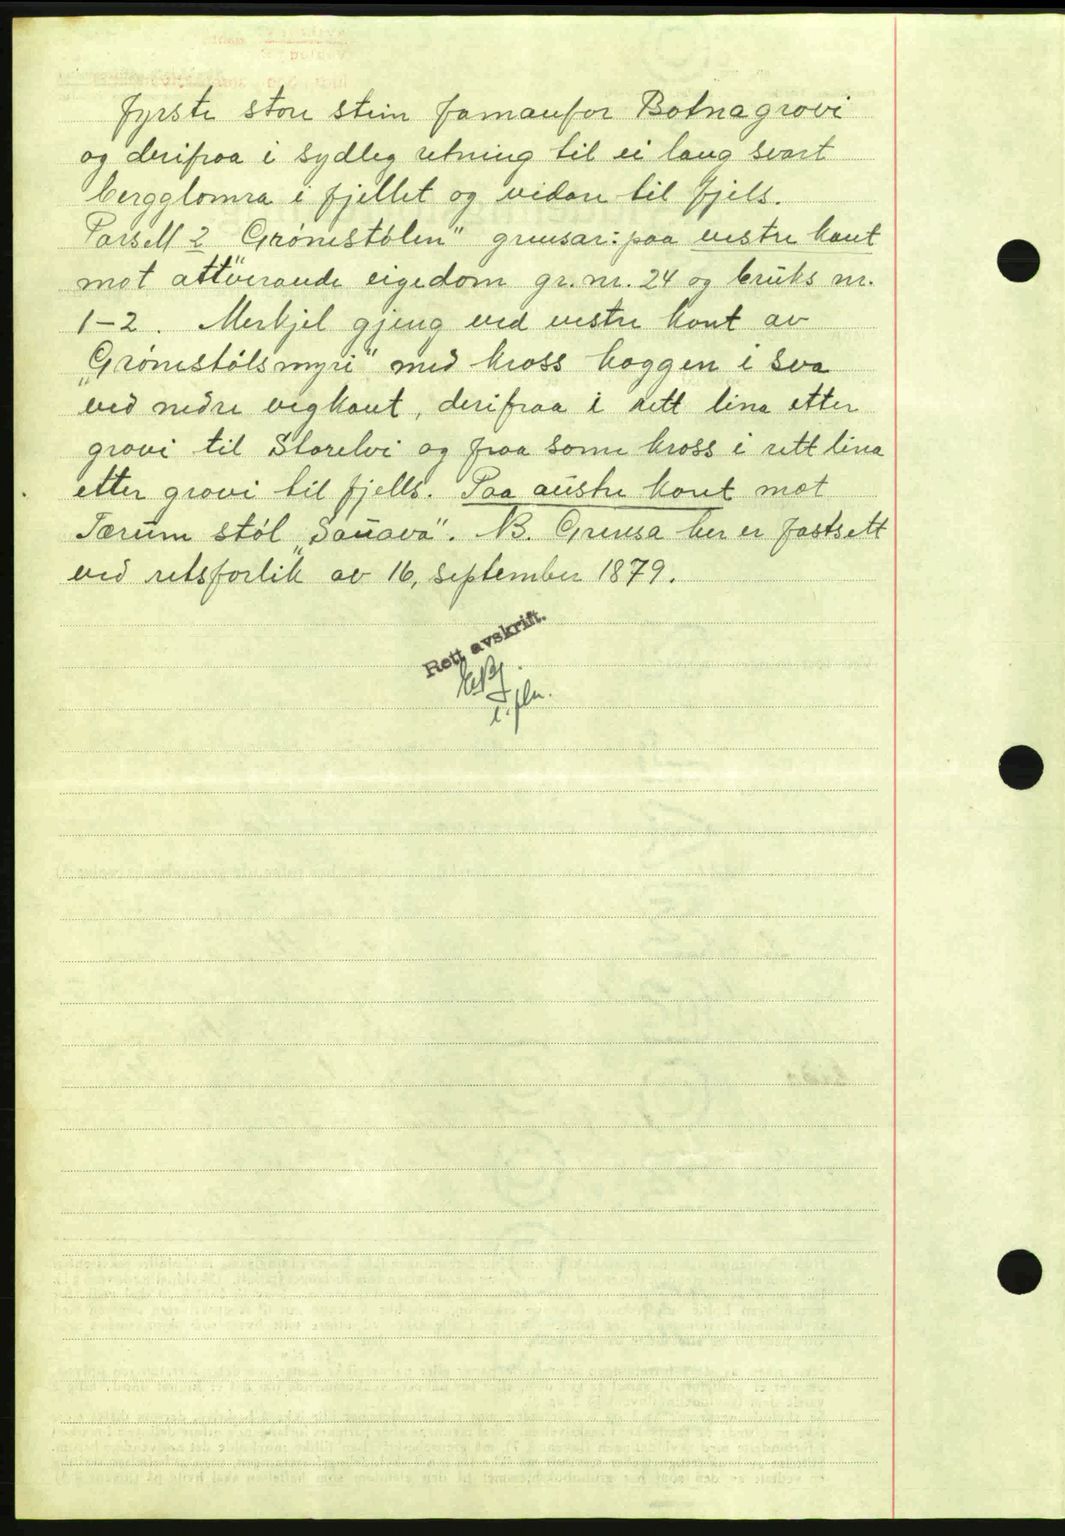 fyrste store stein famanfor Botnagrovi
og derifraa i sydleg retning til ei lang svart
bergglomra i fjellet og vidare til fjels.
Parsell 2 Grönestölen" grensar: paa vestre kant
mot attverande eigedom gr. nr. 24 og bruks nr.
1-2. Merkjel gjeng ved vestre kant av
„Grönestölsmyri" med kross hoggen i sva
ved nedre vegkant, derifraa i rett lina etter
grovi til Storelvi og fraa same kross i rett lina
etter grovi til fjells. Paa austre kant mot
Tærum stöl „Sauava". NB. Grensa her er fastsett
ved retsforlik av 16, september 1879.
Rett avskrift.